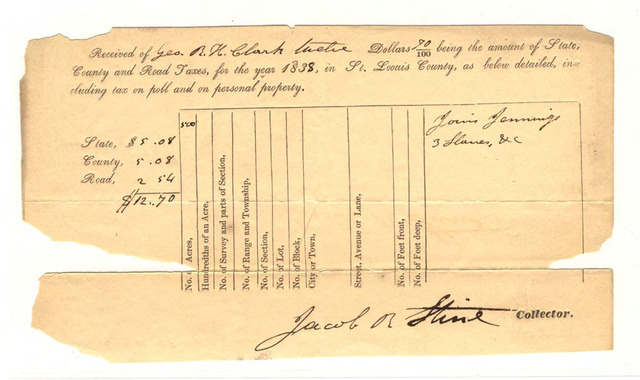 Received of Geo. R. H. Clark twelve Dollars 70/100 being the amount of State,
County and Road Taxes, for the year 1838, in St. Louis County, as below detailed, in-
cluding tax on poll and on personal property.
State, $5.08
County, 5.08
Road, 2 54
$12.70
500
No. of Acres,
Hundredths of an Acre,
No. of Survey and parts of Section,
No. of Range and Township,
No. of Section,
No. of Lot,
No. of Block,
City or Town,
Street, Avenue or Lane,
No. of Feet front,
No. of Feet deep,
Joins Jennings
3 Slaves, &c
Jacob R Stine Collector.